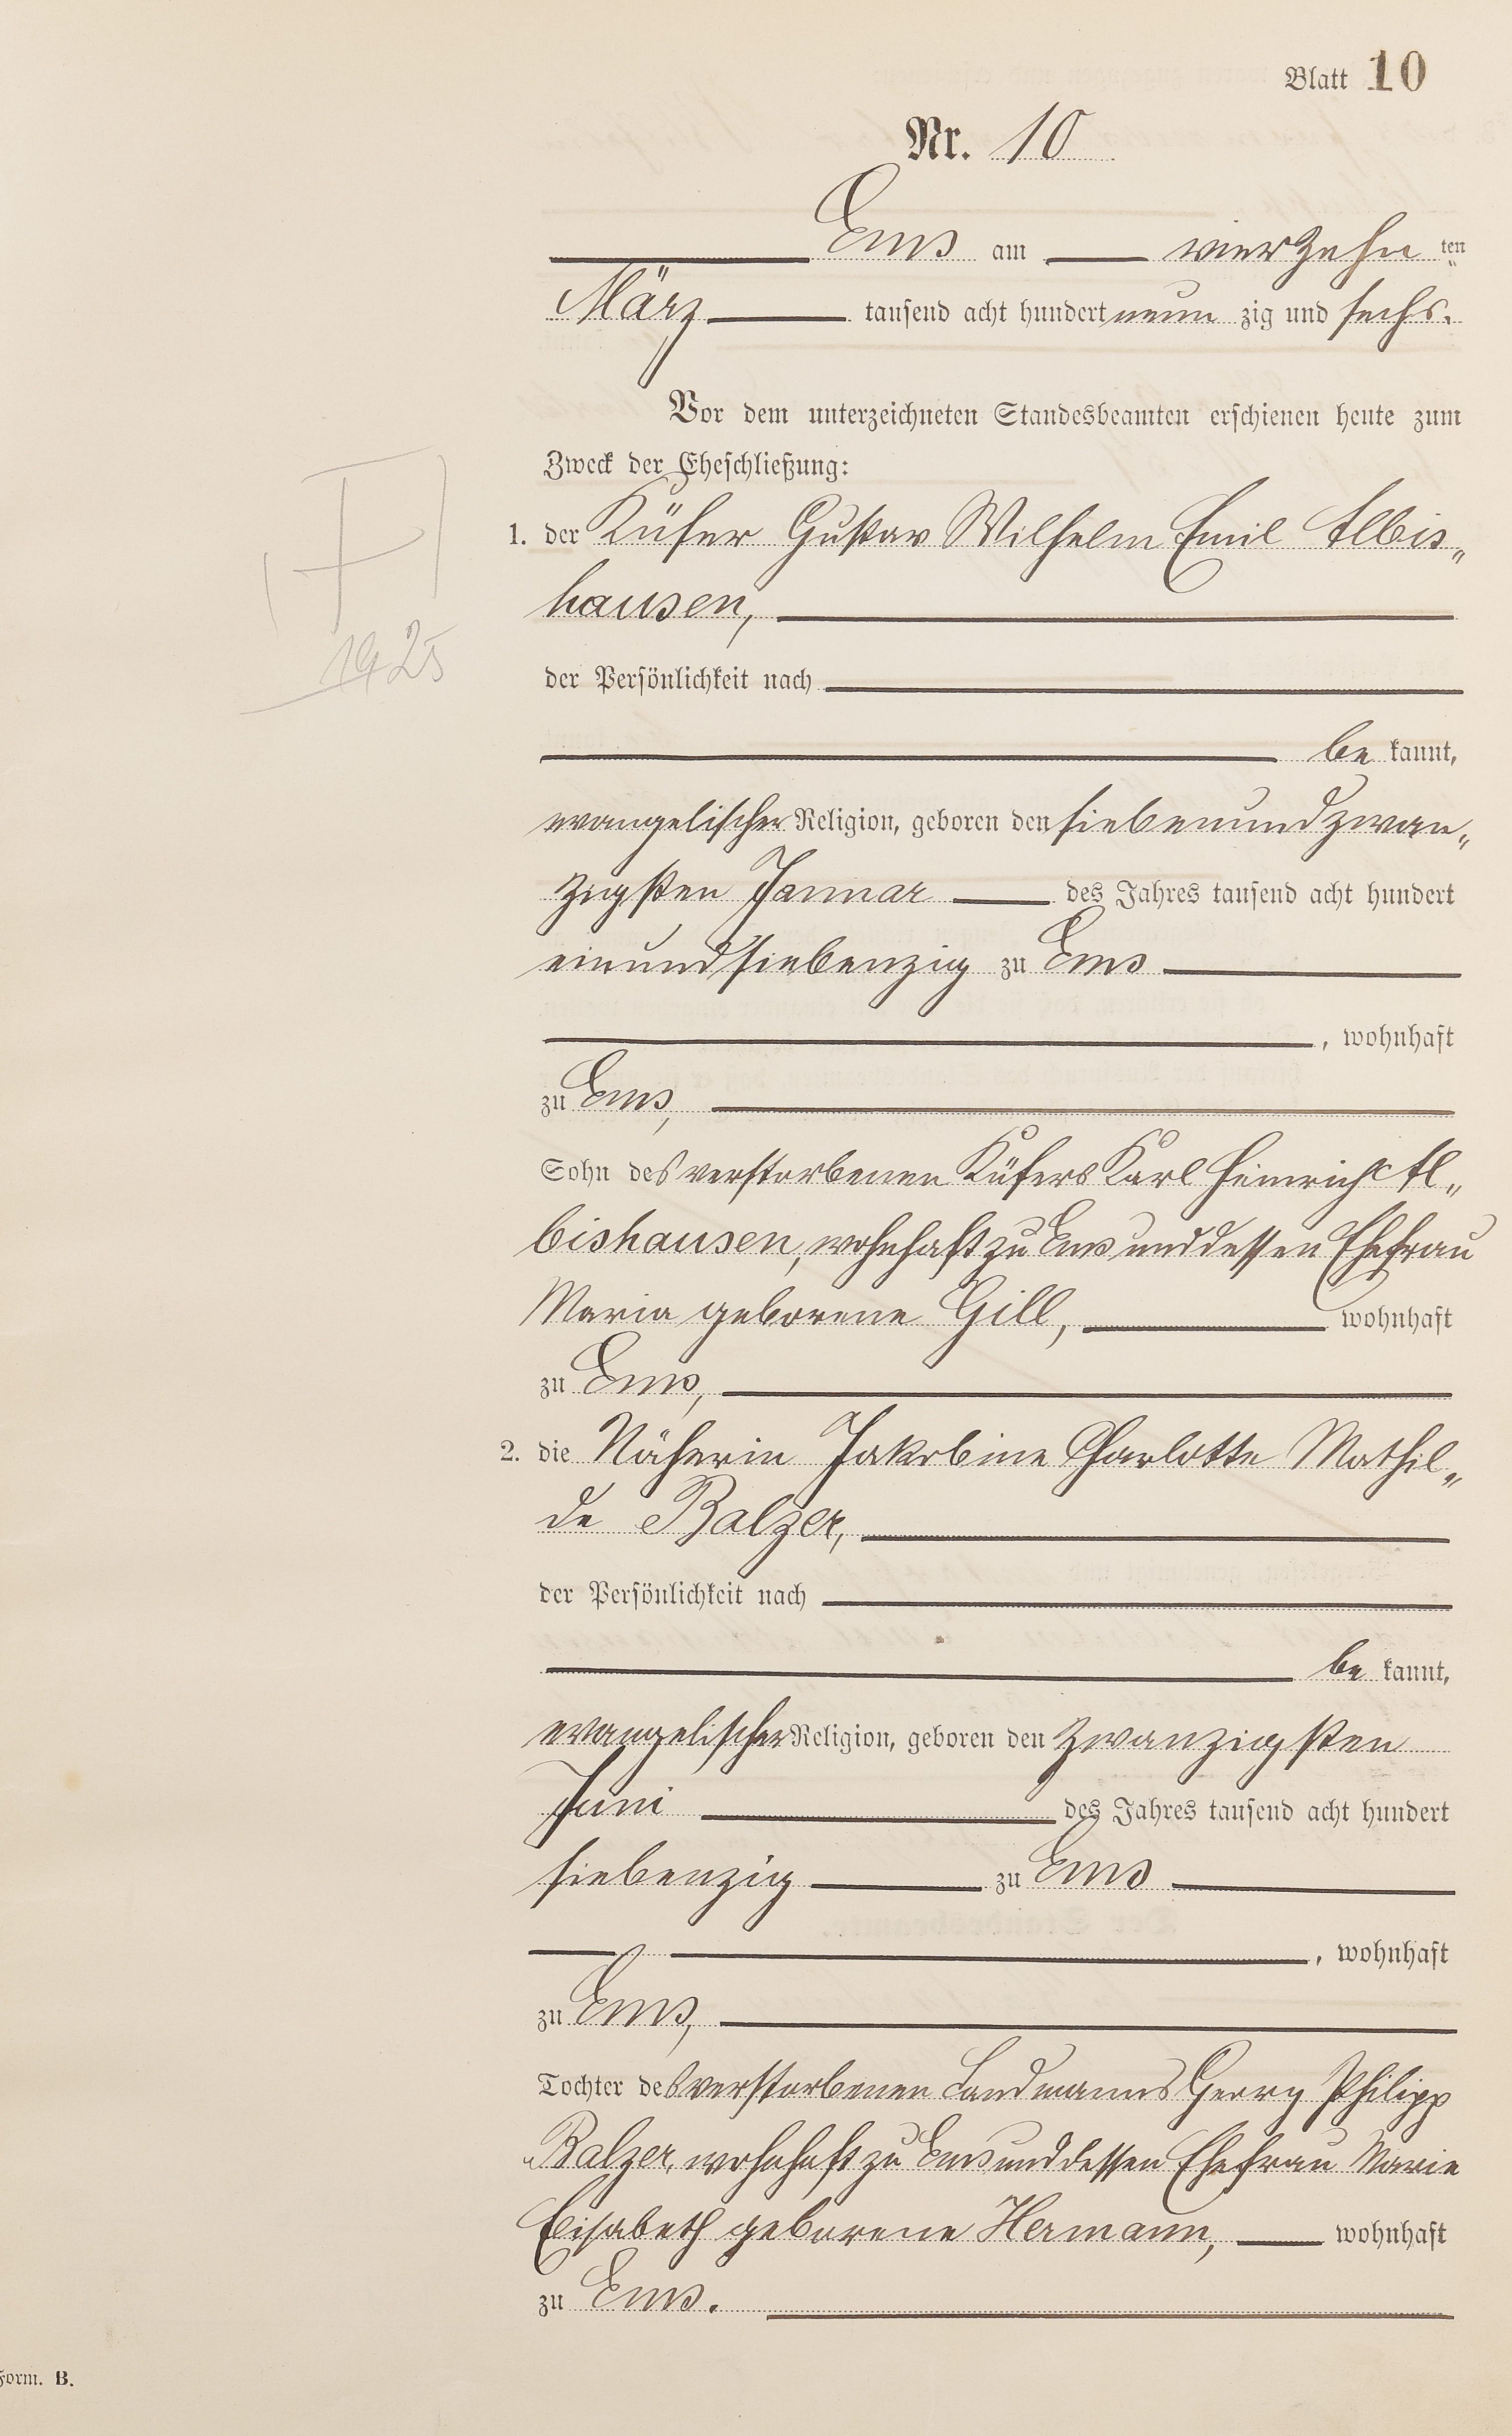 Blatt 10
Nr. 10
Ems am vierzehn ten
März tausend acht hundert neun zig und sechs.
Vor dem unterzeichneten Standesbeamten erschienen heute zum
Zweck der Eheschließung:
1. der Küfer Gustav Wilhelm Emil Albis„
hausen,
der Persönlichkeit nach
be kannt,
evangelischer Religion, geboren den siebenundzwan„
zigsten Januar des Jahres tausend acht hundert
einundsiebenzig zu Ems
, wohnhaft
zu Ems,
Sohn des verstorbenen Küfers Karl Heinrich Al„
bishausen, wohnhaft zu Ems und dessen Ehefrau
Maria geborene Gill, wohnhaft
zu Ems,
2. die Näherin Jakobine Charlotte Mathil„
de Balzer,
der Persönlichkeit nach
be kannt,
evangelischer Religion, geboren den zwanzigsten
Juni des Jahres tausend acht hundert
siebenzig zu Ems
, wohnhaft
zu Ems,
Tochter des verstorbenen Landmanns Georg Philipp
Balzer, wohnhaft zu Ems und dessen Ehefrau Marie
Elisabeth geborene Hermann, wohnhaft
zu Ems.
1925
Form. B.